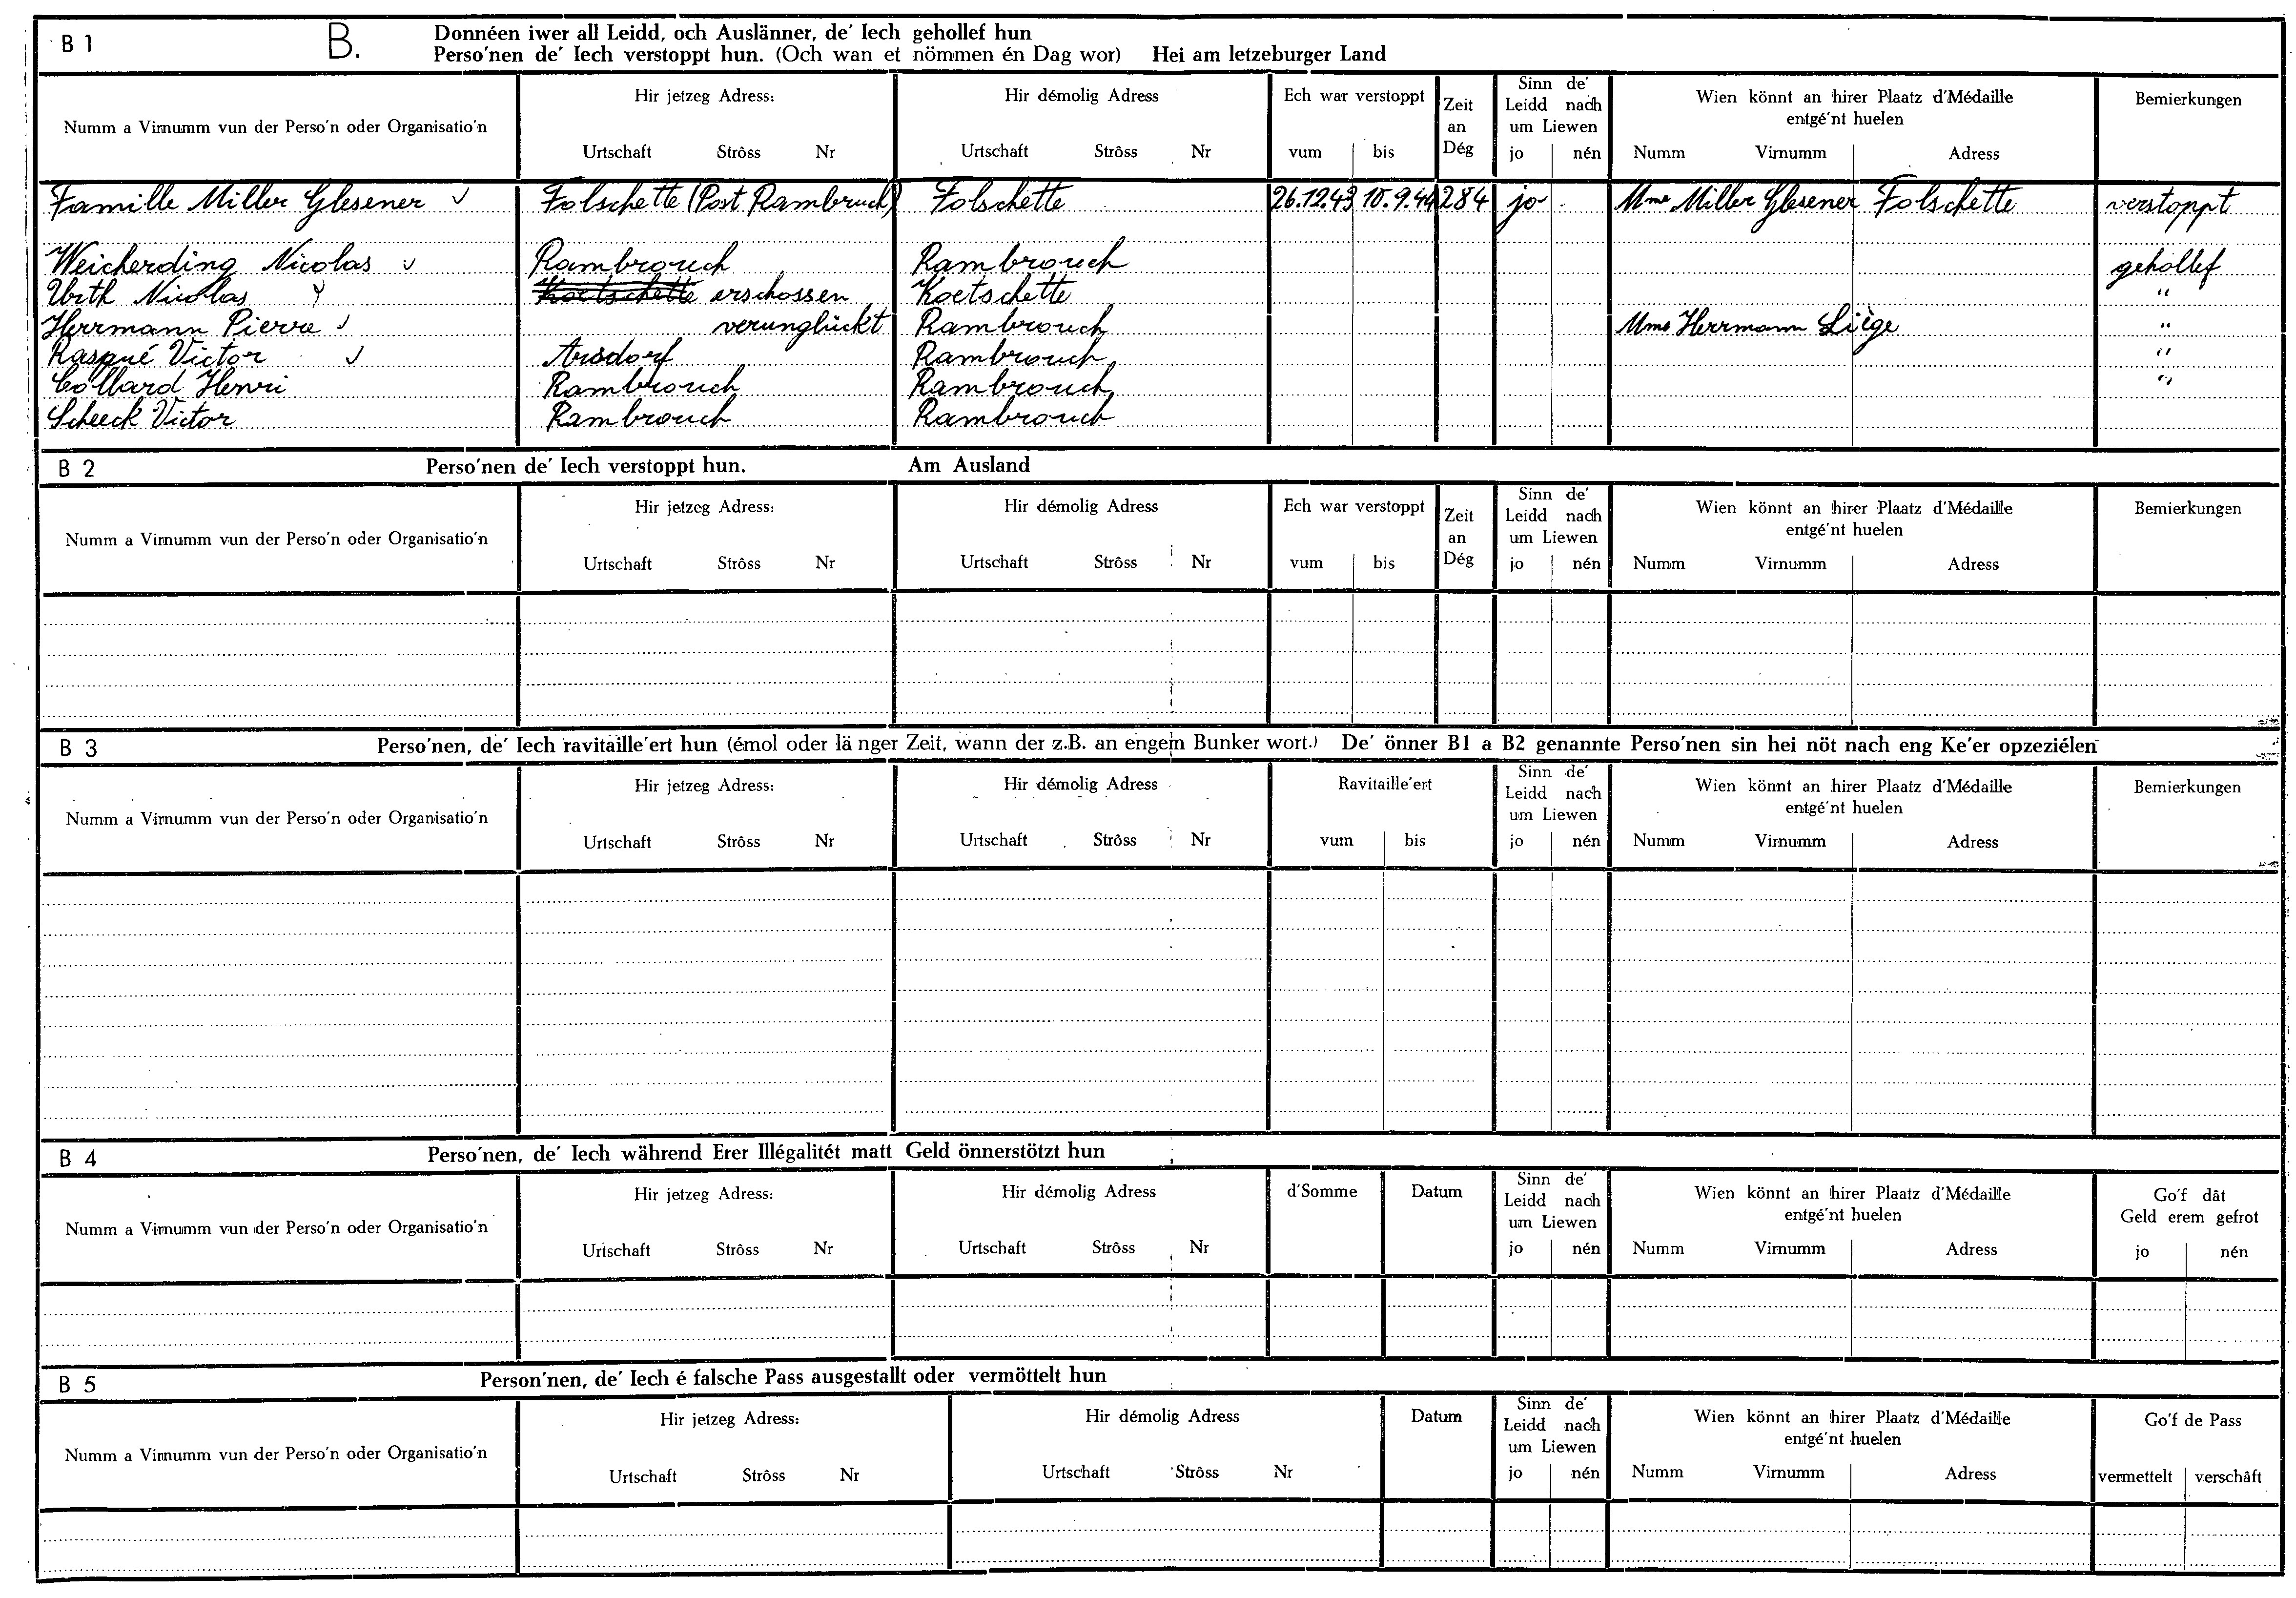 B 1 B. Donnéen iwer all Leidd, och Auslänner, de' Iech gehollef hun
Perso'nen de' Iech verstoppt hun. (Och wan et nömmen én Dag wor) Hei am letzeburger Land
Numm a Virnumm vun der Perso'n oder Organisatio'n
Hir jetzeg Adress:
Urtschaft Strôss Nr
Hir démolig Adress
Urtschaft Strôss Nr
Ech war verstoppt
vum bis
Zeit
an
Dég
Sinn de'
Leidd nach
um Liewen
jo nén
Wien könnt an hirer Plaatz d'Médaille
entgé'nt huelen
Numm Virnumm Adress
Bemierkungen
Famille Miller Glesener Folschette (Post Rambruch) Folschette 26.12.43 10.9.44 284 jo Mme Miller Glesener Folschette verstoppt
Weicherding Nicolas Rambrouch Rambrouch gehollef
Urth Nicolas Koetschette erschossen Koetschette "
Herrmann Pierre verunglückt Rambrouch Mme Herrmann Liège "
Rasqué Victor Arsdorf Rambrouch "
Collard Henri Rambrouch Rambrouch "
Scheeck Victor Rambrouch Rambrouch
B 2 Perso'nen de' Iech verstoppt hun. Am Ausland
Numm a Virnumm vun der Perso'n oder Organisatio'n
Hir jetzeg Adress:
Urtschaft Strôss Nr
Hir démolig Adress
Urtschaft Strôss Nr
Ech war verstoppt
vum bis
Zeit
an
Dég
Sinn de'
Leidd nach
um Liewen
jo nén
Wien könnt an hirer Plaatz d'Médaille
entgé'nt huelen
Numm Virnumm Adress
Bemierkungen
B 3 Perso'nen, de' Iech ravitaille'ert hun (émol oder länger Zeit, wann der z.B. an engem Bunker wort.) De' önner B1 a B2 genannte Perso'nen sin hei nöt nach eng Ke'er opzeziélen
Numm a Virnumm vun der Perso'n oder Organisatio'n
Hir jetzeg Adress:
Urtschaft Strôss Nr
Hir démolig Adress
Urtschaft Strôss Nr
Ravitaille'ert
vum bis
Sinn de'
Leidd nach
um Liewen
jo nén
Wien könnt an hirer Plaatz d'Médaille
entgé'nt huelen
Numm Virnumm Adress
Bemierkungen
B 4 Perso'nen, de' Iech während Erer Illégalitét matt Geld önnerstötzt hun
Numm a Virnumm vun der Perso'n oder Organisatio'n
Hir jetzeg Adress:
Urtschaft Strôss Nr
Hir démolig Adress
Urtschaft Strôss Nr
d'Somme
Datum
Sinn de'
Leidd nach
um Liewen
jo nén
Wien könnt an hirer Plaatz d'Médaille
entgé'nt huelen
Numm Virnumm Adress
Go'f dât
Geld erem gefrot
jo nén
B 5 Person'nen, de' Iech é falsche Pass ausgestallt oder vermöttelt hun
Numm a Virnumm vun der Perso'n oder Organisatio'n
Hir jetzeg Adress:
Urtschaft Strôss Nr
Hir démolig Adress
Urtschaft Strôss Nr
Datum
Sinn de'
Leidd nach
um Liewen
jo nén
Wien könnt an hirer Plaatz d'Médaille
entgé'nt huelen
Numm Virnumm Adress
Go'f de Pass
vermettelt verschâft